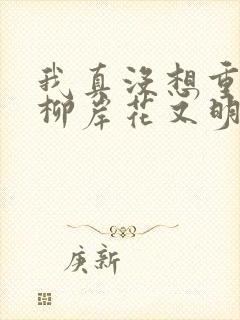 我真没想重
柳岸花又明
庚新